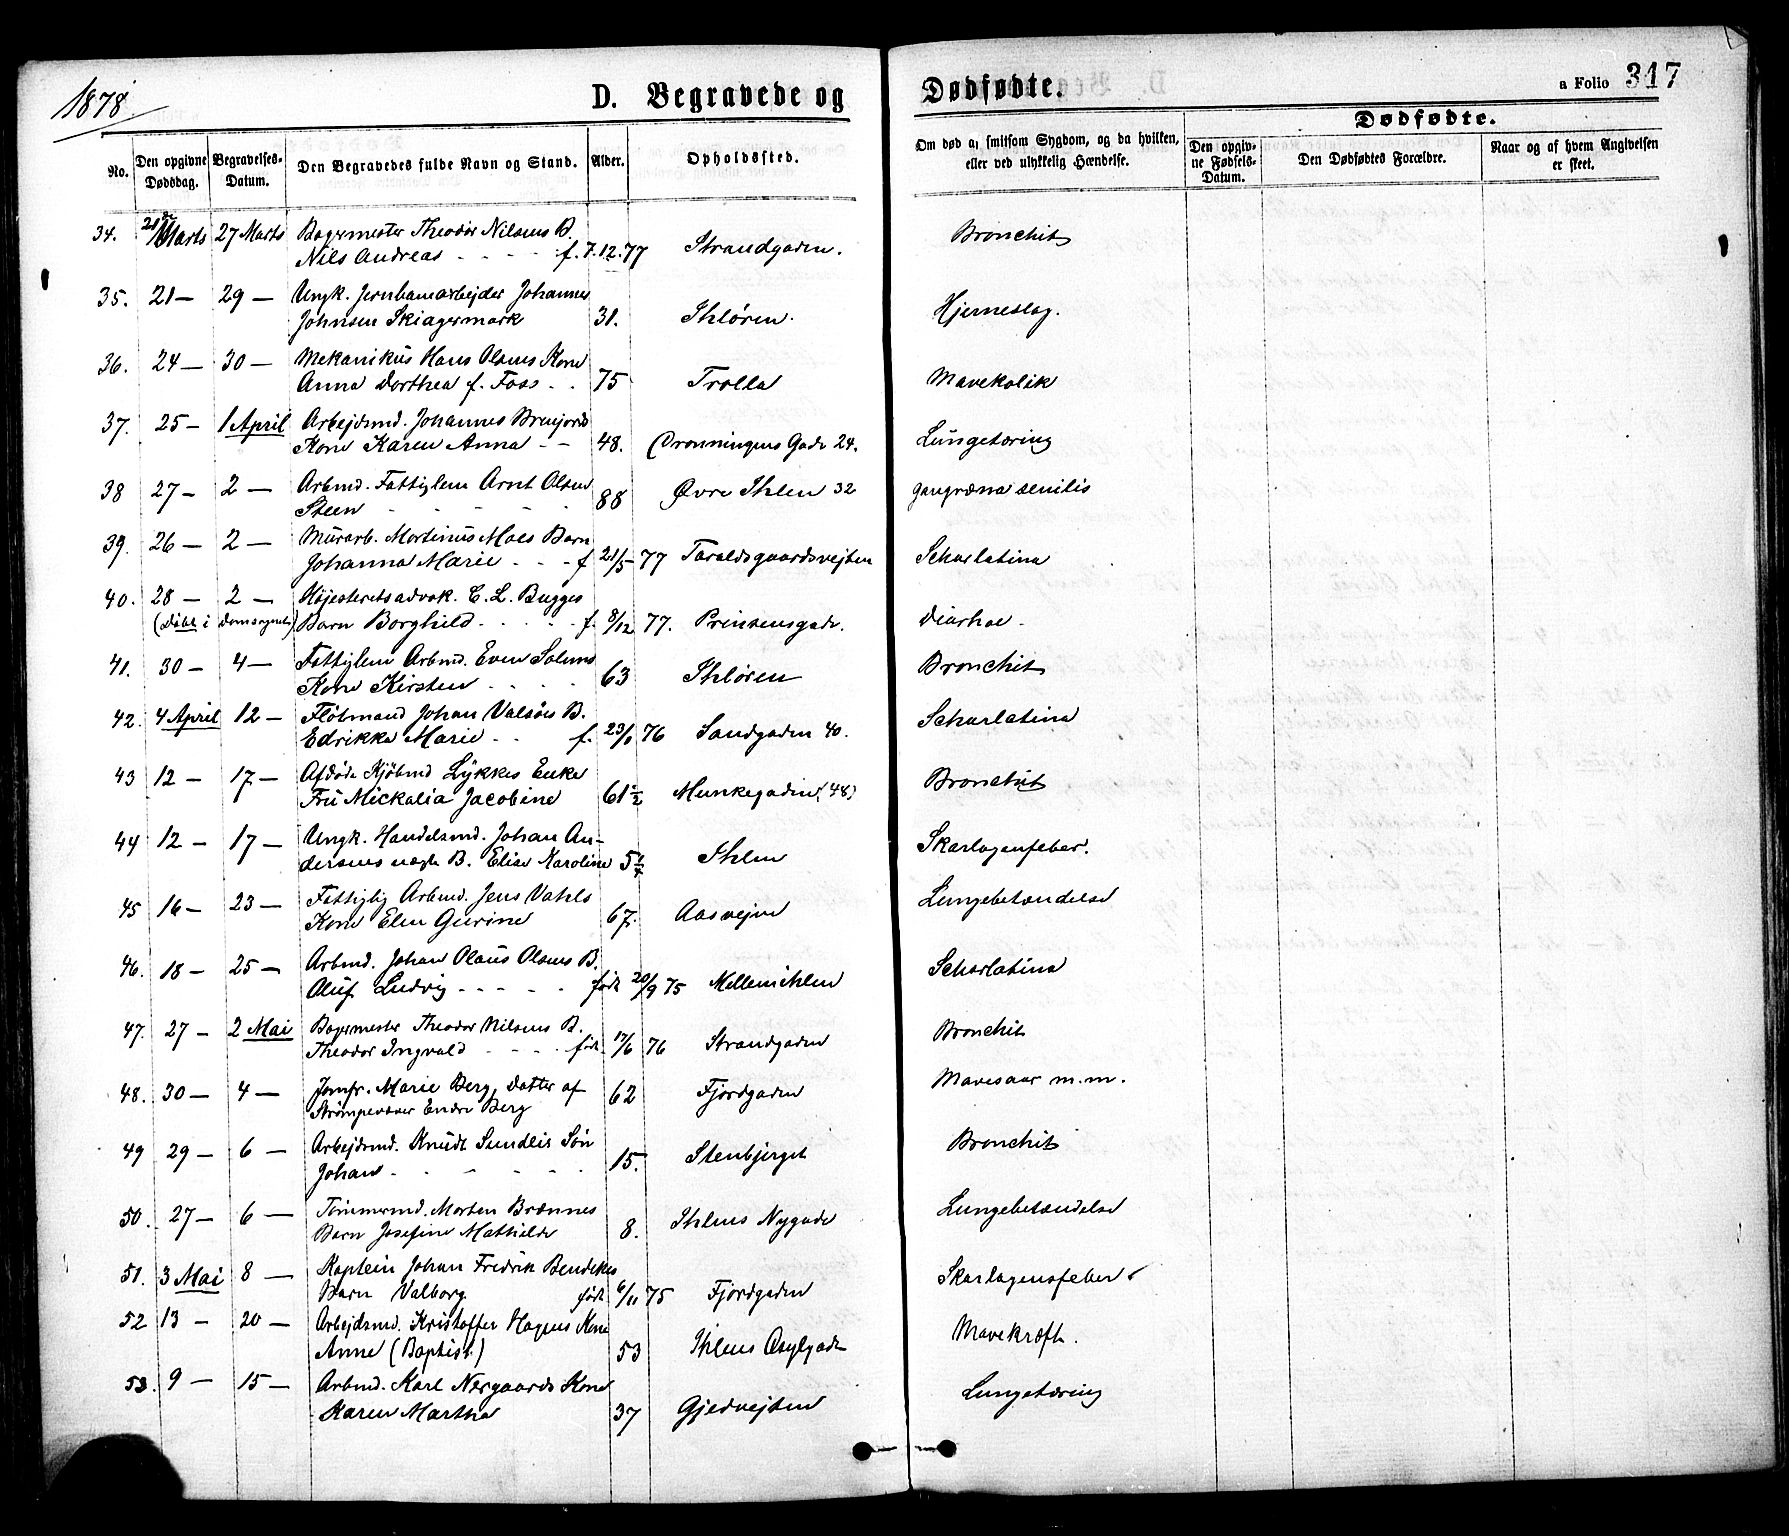 1878.
D. Begravede og Dødfødte.
a Folio 317
No.
Den opgivne Dødsdag.
Begravelses-Datum.
Den Begravedes fulde Navn og Stand.
Alder.
Opholdssted.
Om død af smitsom Sygdom, og da hvilken, eller ved ulykkelig Hændelse.
Dødfødte.
Den opgivne Fødsels-Datum.
Den Dødfødtes Forældre.
Naar og af hvem Angivelsen er skeet.
34. 21de Marts 27 Marts Bagermester Theodor Nilsens B.
Nils Andreas - - - - f. 7.12.77 Strandgaden. Bronchit
35. 21 — 29 — Ungk. Jernbanearbejder Johannes
Johnsen Skiagermark 31. Ihløren. Hjerneslag.
36. 24 — 30 — Mekanikus Hans Olsens Kone
Anna Dorthea f. Foss - - 75 Trolla Mavekolik
37. 25 — 1 April Arbejdsmd. Johannes Bruejords
Kone Karen Anna - - 48. Dronningens Gade 24. Lungetæring
38 27 — 2 — Arbmd. Fattiglem Arnt Olsen
Steen - - - - - 88 Øvre Ihlen 32 gangræna senilis
39. 26 — 2 — Murarb. Martinus Moes Barn
Johanna Marie - - - f 21/5 77 Taraldsgaardsvejten Scharlatina
40. 28 — 2 — Højesteretsadvok. C. L. Bugges
(Døbt i Domsognet) Barn Borghild - - - - - f. 8/12 77. Prinsensgade. Diarhoe -
41. 30 — 4 — Fattiglem Arbmd. Even Solems
Kone Kirsten - - - - 63 Ihløren Bronchit
42. 4 April 12 — Fløtmand Johan Valsøes B.
Edrikke Marie - - f. 23/ 76 Sandgaden 40. Scharlatina
43 12 — 17 — Afdøde Kjøbmd Lykkes Enke
Fru Mickalia Jacobine 61 1/2 Munkegaden (48) Bronchit
44 12 — 17 — Ungk. Handelsmd. Johan An-
dersens uægte B. Elise Karoline 5 Ihlen Skarlagenfeber.
45 16 — 23 — Fattiglg Arbmd. Jens Vahls
Kone Elen Gurine 67. Aasvejen Lungebetændelse
46. 18 — 25 — Arbmd. Johan Olaus Olsens B.
Oluf Ludvig - - - - - født 20/9 75 Mellemihlen Scharlatina
47. 27 — 2 Mai Bagermester Theodor Nilsens B.
Theodor Ingvald - - - - født 17/6 76 Strandgaden Bronchit
48. 30 — 4 — Jomfr. Marie Berg, Datter af
Strømpevæver Endre Berg 62 Fjordgaden Mavesaar m.m.
49 29 — 6 — Arbejdsmd. Knudt Sundlis Søn
Johan - - - - - - 15. Stenbjerget Bronchit
50. 27 — 6 — Tømmermd. Morten Brænnes
Barn Josefine Mathilde 8. Ihlens Nygade Lungebetændelse
51. 3 Mai 8 — Kaptein Johan Fredrik Bendikes
Barn Valborg født 6/11 75 Fjordgaden Skarlagensfeber
52 13 — 20 — Arbejdsmd. Kristoffer Hagens Kone
Anne (Baptist) 53 Ihlens Asylgade Mavekræft.
53. 9 — 15 — Arbmd. Karl Nærgaards Kone
Karen Martha 37 Gjedvejten Lungetæring